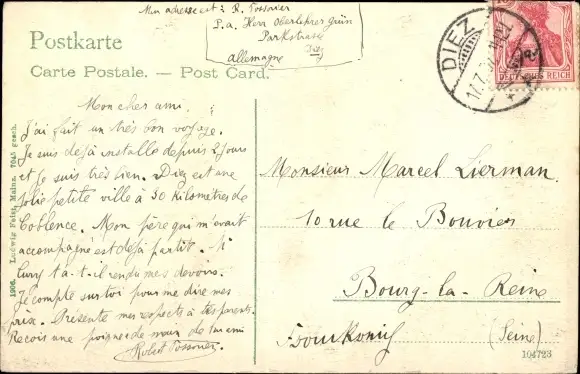 Mon adresse est : R. Possnier
P.a. Herr Oberlehrer Grün
Parkstrasse
Diez
Allemagne
Postkarte
Carte Postale. — Post Card.
DIEZ
17.7.
DEUTSCHES REICH
Mon cher ami.
J'ai fait un très bon voyage.
Je suis déjà installé depuis 2 jours
et je suis très bien. Diez est une
jolie petite ville à 30 kilomètres de
Coblence. Mon père qui m'avait
accompagné est déjà partit. M
t'a-t-il rendu mes devoirs.
Je compte sur toi pour me dire mes
prix. Présente mes respects à tes parents.
Reçois une poignée de main de ton ami
Robert
Monsieur Marcel Lierman
10 rue le Bouvier
Bourg-la-Reine
(Seine)
Frankreich
1906. Ludwig Feist, Mainz. gesch.
104723